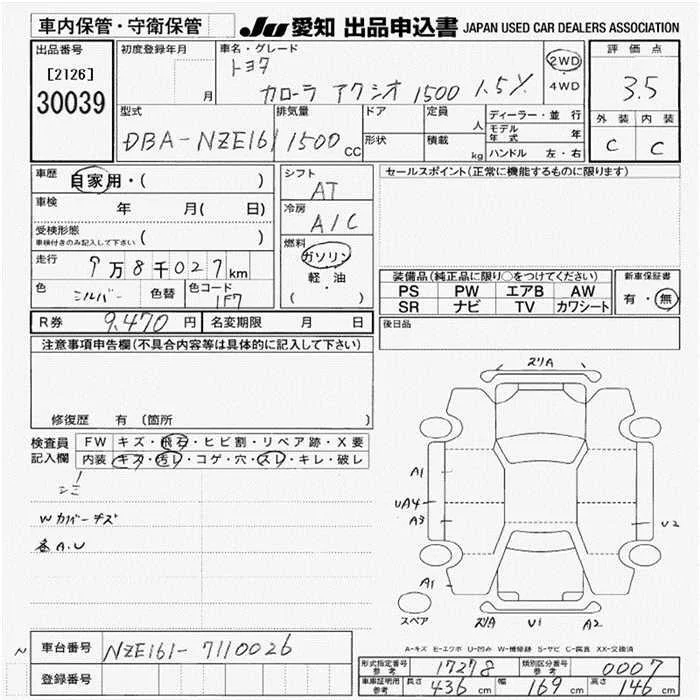 車内保管・守衛保管
JU 愛知 出品申込書 JAPAN USED CAR DEALERS ASSOCIATION
出品番号
[2126]
30039
初度登録年月
月
車名・グレード
トヨタ
カローラ アクシオ 1500 1.5X
2WD
・
4WD
評価点
3.5
外装 内装
C C
型式
DBA-NZE161
排気量
1500 CC
ドア
形状
定員
人
積載
kg
ディーラー・並行
モデル年式 年
ハンドル 左・右
車歴
自家用・( )
車検 年 月( 日)
受検形態
車検付きのみ記入して下さい ( )
走行 9万8千027km
色 シルバー 色替 色コード 1F7
シフト
AT
冷房
A/C
燃料
ガソリン
軽・油
( )
セールスポイント(正常に機能するものに限ります)
装備品(純正品に限り○をつけてください)
PS PW エアB AW
SR ナビ TV カワシート
新車保証書
有・無
R券 9,470 円 名変期限 月 日
後日品
注意事項申告欄(不具合内容等は具体的に記入して下さい)
修復歴 有 〔箇所 〕
検査員
記入欄
FW キズ・飛石・ヒビ割・リペア跡・X要
内装 キズ・汚レ・コゲ・穴・スレ・キレ・破レ
シミ
Wカバーキズ
各A.U
スリA
A1
UA4
A3
U2
A1
スペア
スリA U1 A2
A-キズ E-エクボ U-凹み W-補修跡 S-サビ C-腐食 XX-交換済
N
車台番号 NZE161-7110026
登録番号
形式指定番号 参考 17278 類別区分番号 参考 0007
車庫証明用 参考 長さ 436 cm 幅 169 cm 高さ 146 cm